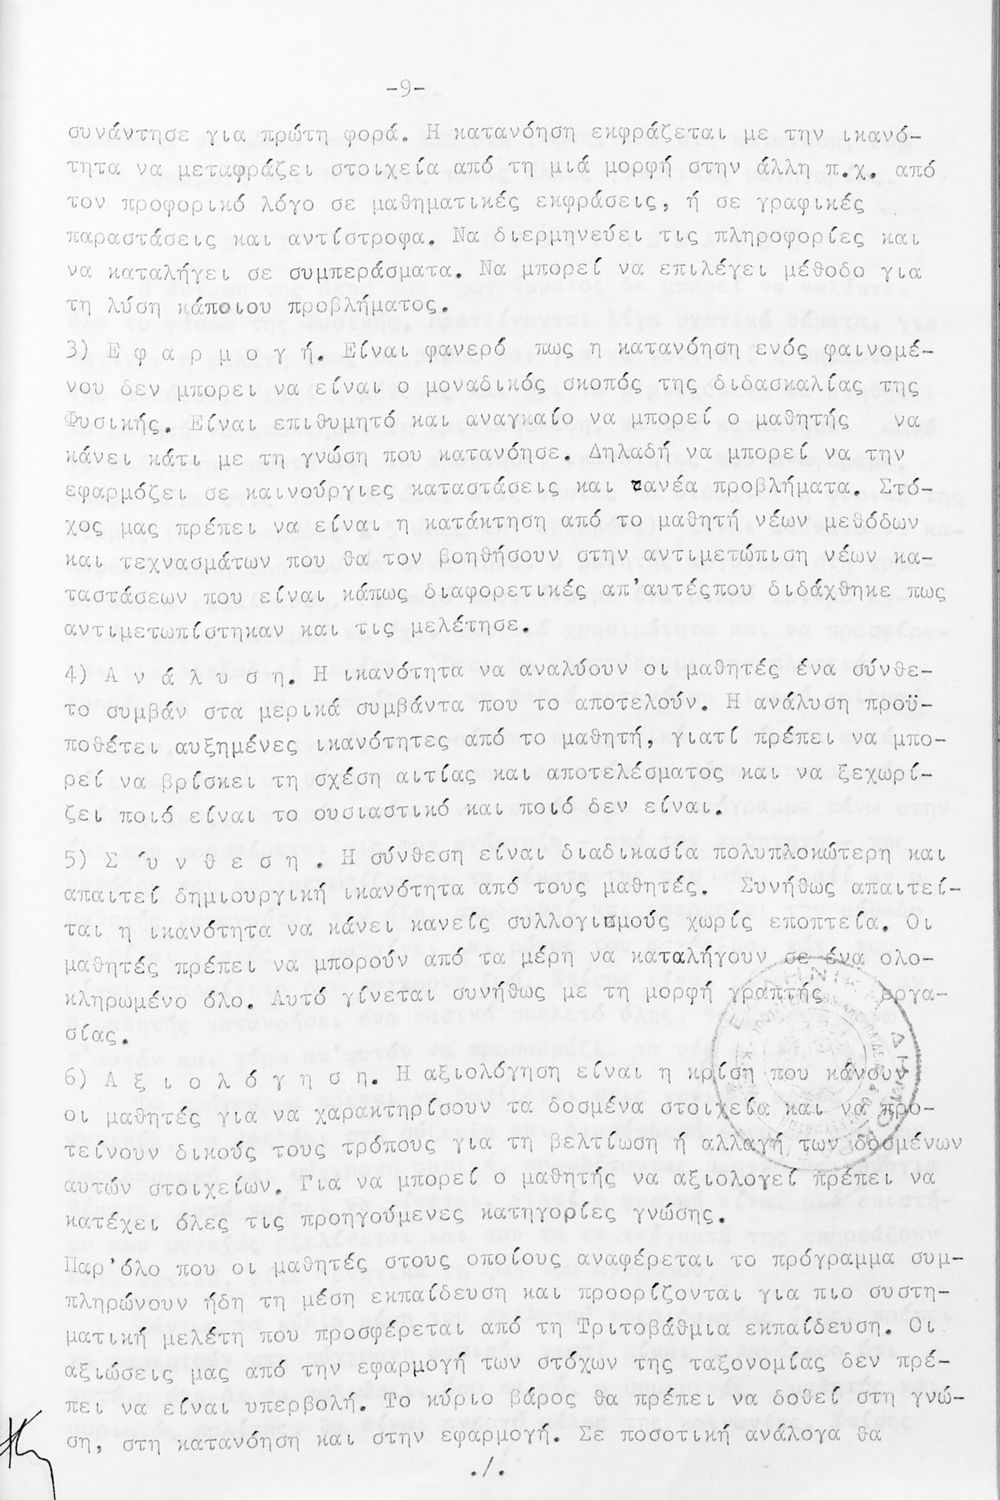 -9-
συνάντησε για πρώτη φορά. Η κατανόηση εκφράζεται με την ικανό-
τητα να μεταφράζει στοιχεία από τη μιά μορφή στην άλλη π.χ. από
τον προφορικό λόγο σε μαθηματικές εκφράσεις, ή σε γραφικές
παραστάσεις και αντίστροφα. Να διερμηνεύει τις πληροφορίες και
να καταλήγει σε συμπεράσματα. Να μπορεί να επιλέγει μέθοδο για
τη λύση κάποιου προβλήματος.
3) Ε φ α ρ μ ο γ ή. Είναι φανερό πως η κατανόηση ενός φαινομέ-
νου δεν μπορει να είναι ο μοναδικός σκοπός της διδασκαλίας της
Φυσικής. Είναι επιθυμητό και αναγκαίο να μπορεί ο μαθητής να
κάνει κάτι με τη γνώση που κατανόησε. Δηλαδή να μπορεί να την
εφαρμόζει σε καινούργιες καταστάσεις και τανέα προβλήματα. Στό-
χος μας πρέπει να είναι η κατάκτηση από το μαθητή νέων μεθόδων
και τεχνασμάτων που θα τον βοηθήσουν στην αντιμετώπιση νέων κα-
ταστάσεων που είναι κάπως διαφορετικές απ'αυτέςπου διδάχθηκε πως
αντιμετωπίστηκαν και τις μελέτησε.
4) Α ν ά λ υ σ η. Η ικανότητα να αναλύουν οι μαθητές ένα σύνθε-
το συμβάν στα μερικά συμβάντα που το αποτελούν. Η ανάλυση προϋ-
ποθέτει αυξημένες ικανότητες από το μαθητή, γιατί πρέπει να μπο-
ρεί να βρίσκει τη σχέση αιτίας και αποτελέσματος και να ξεχωρί-
ζει ποιό είναι το ουσιαστικό και ποιό δεν είναι.
5) Σ ύ ν θ ε σ η . Η σύνθεση είναι διαδικασία πολυπλοκώτερη και
απαιτεί δημιουργική ικανότητα από τους μαθητές. Συνήθως απαιτεί-
ται η ικανότητα να κάνει κανείς συλλογισμούς χωρίς εποπτεία. Οι
μαθητές πρέπει να μπορούν από τα μέρη να καταλήγουν σε ένα ολο-
κληρωμένο όλο. Αυτό γίνεται συνήθως με τη μορφή γραπτής εργα-
σίας.
6) Α ξ ι ο λ ό γ η σ η. Η αξιολόγηση είναι η κρίση που κάνουν
οι μαθητές για να χαρακτηρίσουν τα δοσμένα στοιχεία και να προ-
τείνουν δικούς τους τρόπους για τη βελτίωση ή αλλαγή των δοσμένων
αυτών στοιχείων. Για να μπορεί ο μαθητής να αξιολογεί πρέπει να
κατέχει όλες τις προηγούμενες κατηγορίες γνώσης.
Παρ'όλο που οι μαθητές στους οποίους αναφέρεται το πρόγραμμα συμ-
πληρώνουν ήδη τη μέση εκπαίδευση και προορίζονται για πιο συστη-
ματική μελέτη που προσφέρεται από τη Τριτοβάθμια εκπαίδευση. Οι
αξιώσεις μας από την εφαρμογή των στόχων της ταξονομίας δεν πρέ-
πει να είναι υπερβολή. Το κύριο βάρος θα πρέπει να δοθεί στη γνώ-
ση, στη κατανόηση και στην εφαρμογή. Σε ποσοτική ανάλογα θα
./.